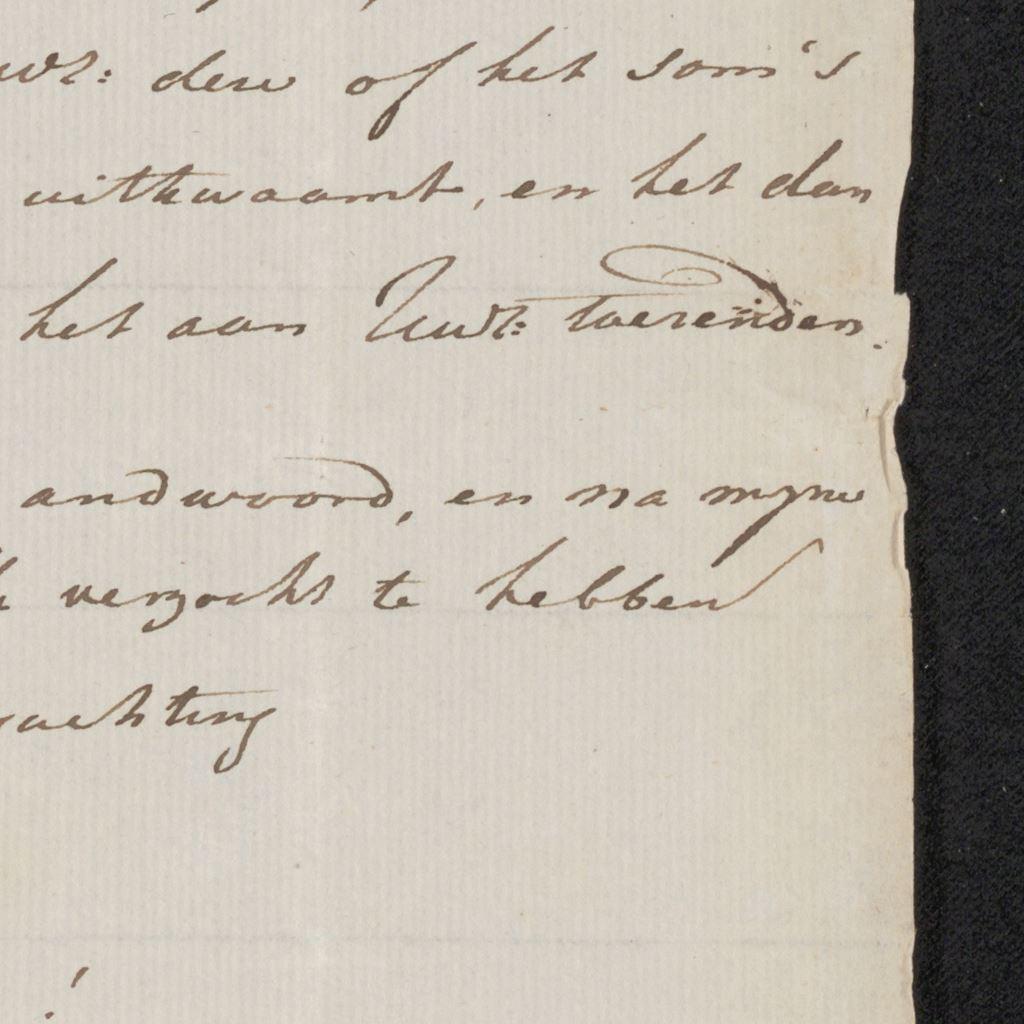 uwE: dese of het som's
uitkwaamt, en het dan
het aan UwE: toesenden.
andwoord, en na mijne
verzocht te hebben
achting
!